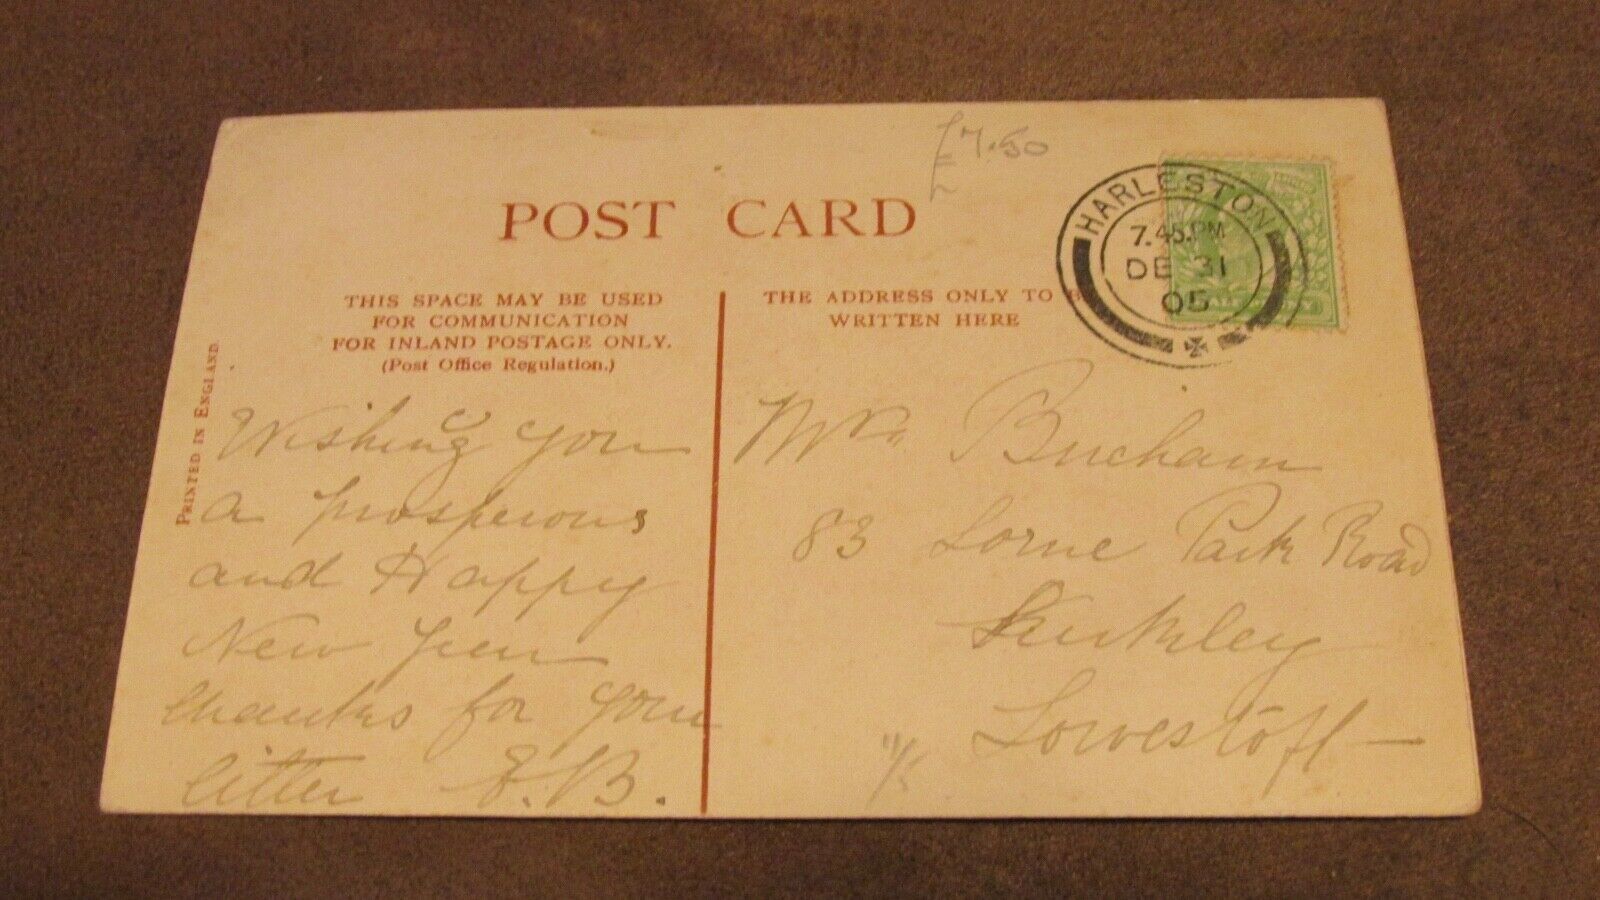 £7.50
POST CARD
HARLESTON
7.45.PM
DE 31
05
THIS SPACE MAY BE USED
FOR COMMUNICATION
FOR INLAND POSTAGE ONLY.
(Post Office Regulation.)
THE ADDRESS ONLY TO B
WRITTEN HERE
PRINTED IN ENGLAND.
Wishing you
a prosperous
and Happy
New Year
thanks for your
litter E.B.
Mrs Bircham
83 Lorne Park Road
Kirkley
Lowestoft